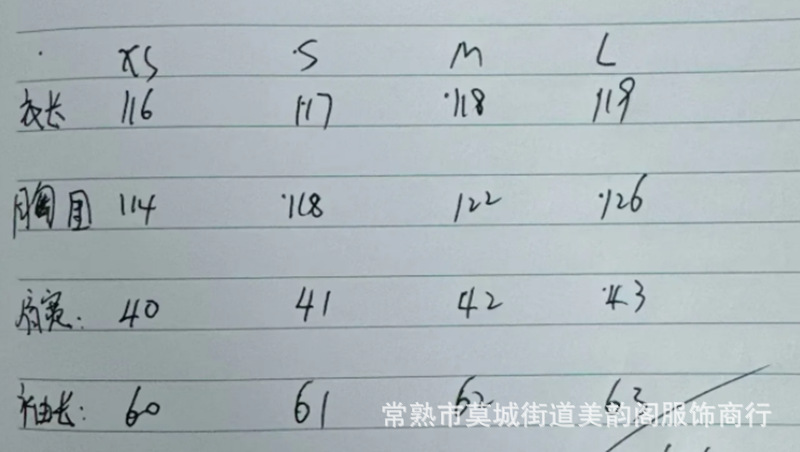 XS S M L
衣长 116 117 118 119
胸围 114 118 122 126
肩宽: 40 41 42 43
袖长: 60 61 62 63
常熟市莫城街道美韵阁服饰商行